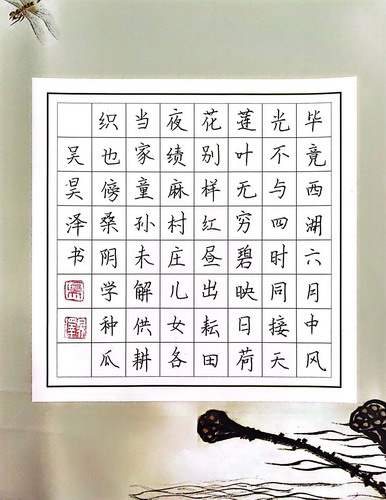 毕竟西湖六月中风
光不与四时同接天
莲叶无穷碧映日荷
花别样红昼出耘田
夜绩麻村庄儿女各
当家童孙未解供耕
织也傍桑阴学种瓜
吴昊泽书